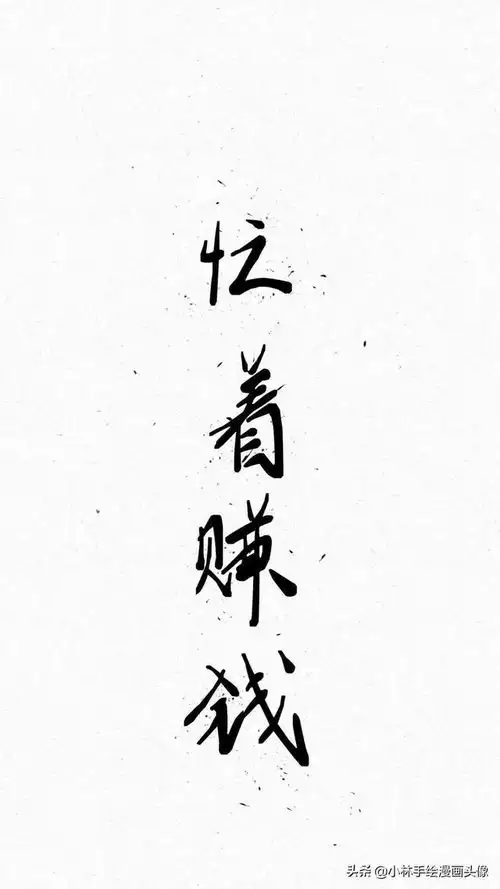 忙着赚钱
头条 @小林手绘漫画头像